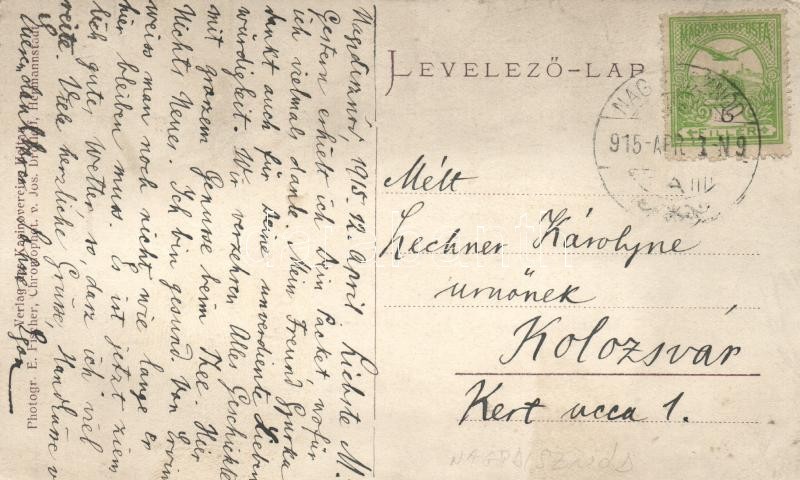 Nagydisznód, 1915. 12. April. Liebste M.
Gestern erhielt ich Dein Packet, wofür
ich vielmals danke. Mein Freund Gyurka
dankt auch für Deine unverdiente Liebens
würdigkeit. Wir verzehren Alles Geschickte
mit grossem Genusse beim Thee. Hier
Nichts Neues. Ich bin gesund. Von Ervin
weiss man noch nicht, wie lange Er
hier bleiben muss. Es ist jetzt ziem
lich gutes Wetter, so, dass ich viel
reite. Viele herzliche Grüsse, Handküsse v.
Sohne Egon
Verlag: Kasinoverein
Photogr. E. Fischer, Chromophot. v. Jos. Drotleff, Hermannstadt
LEVELEZŐ-LAP
MAGYAR KIR. POSTA
FILLÉR
915-APR
Mélt
Lechner Károlyne
urnőnek
Kolozsvár
Kert ucca 1.
NAGYDISZNÓD